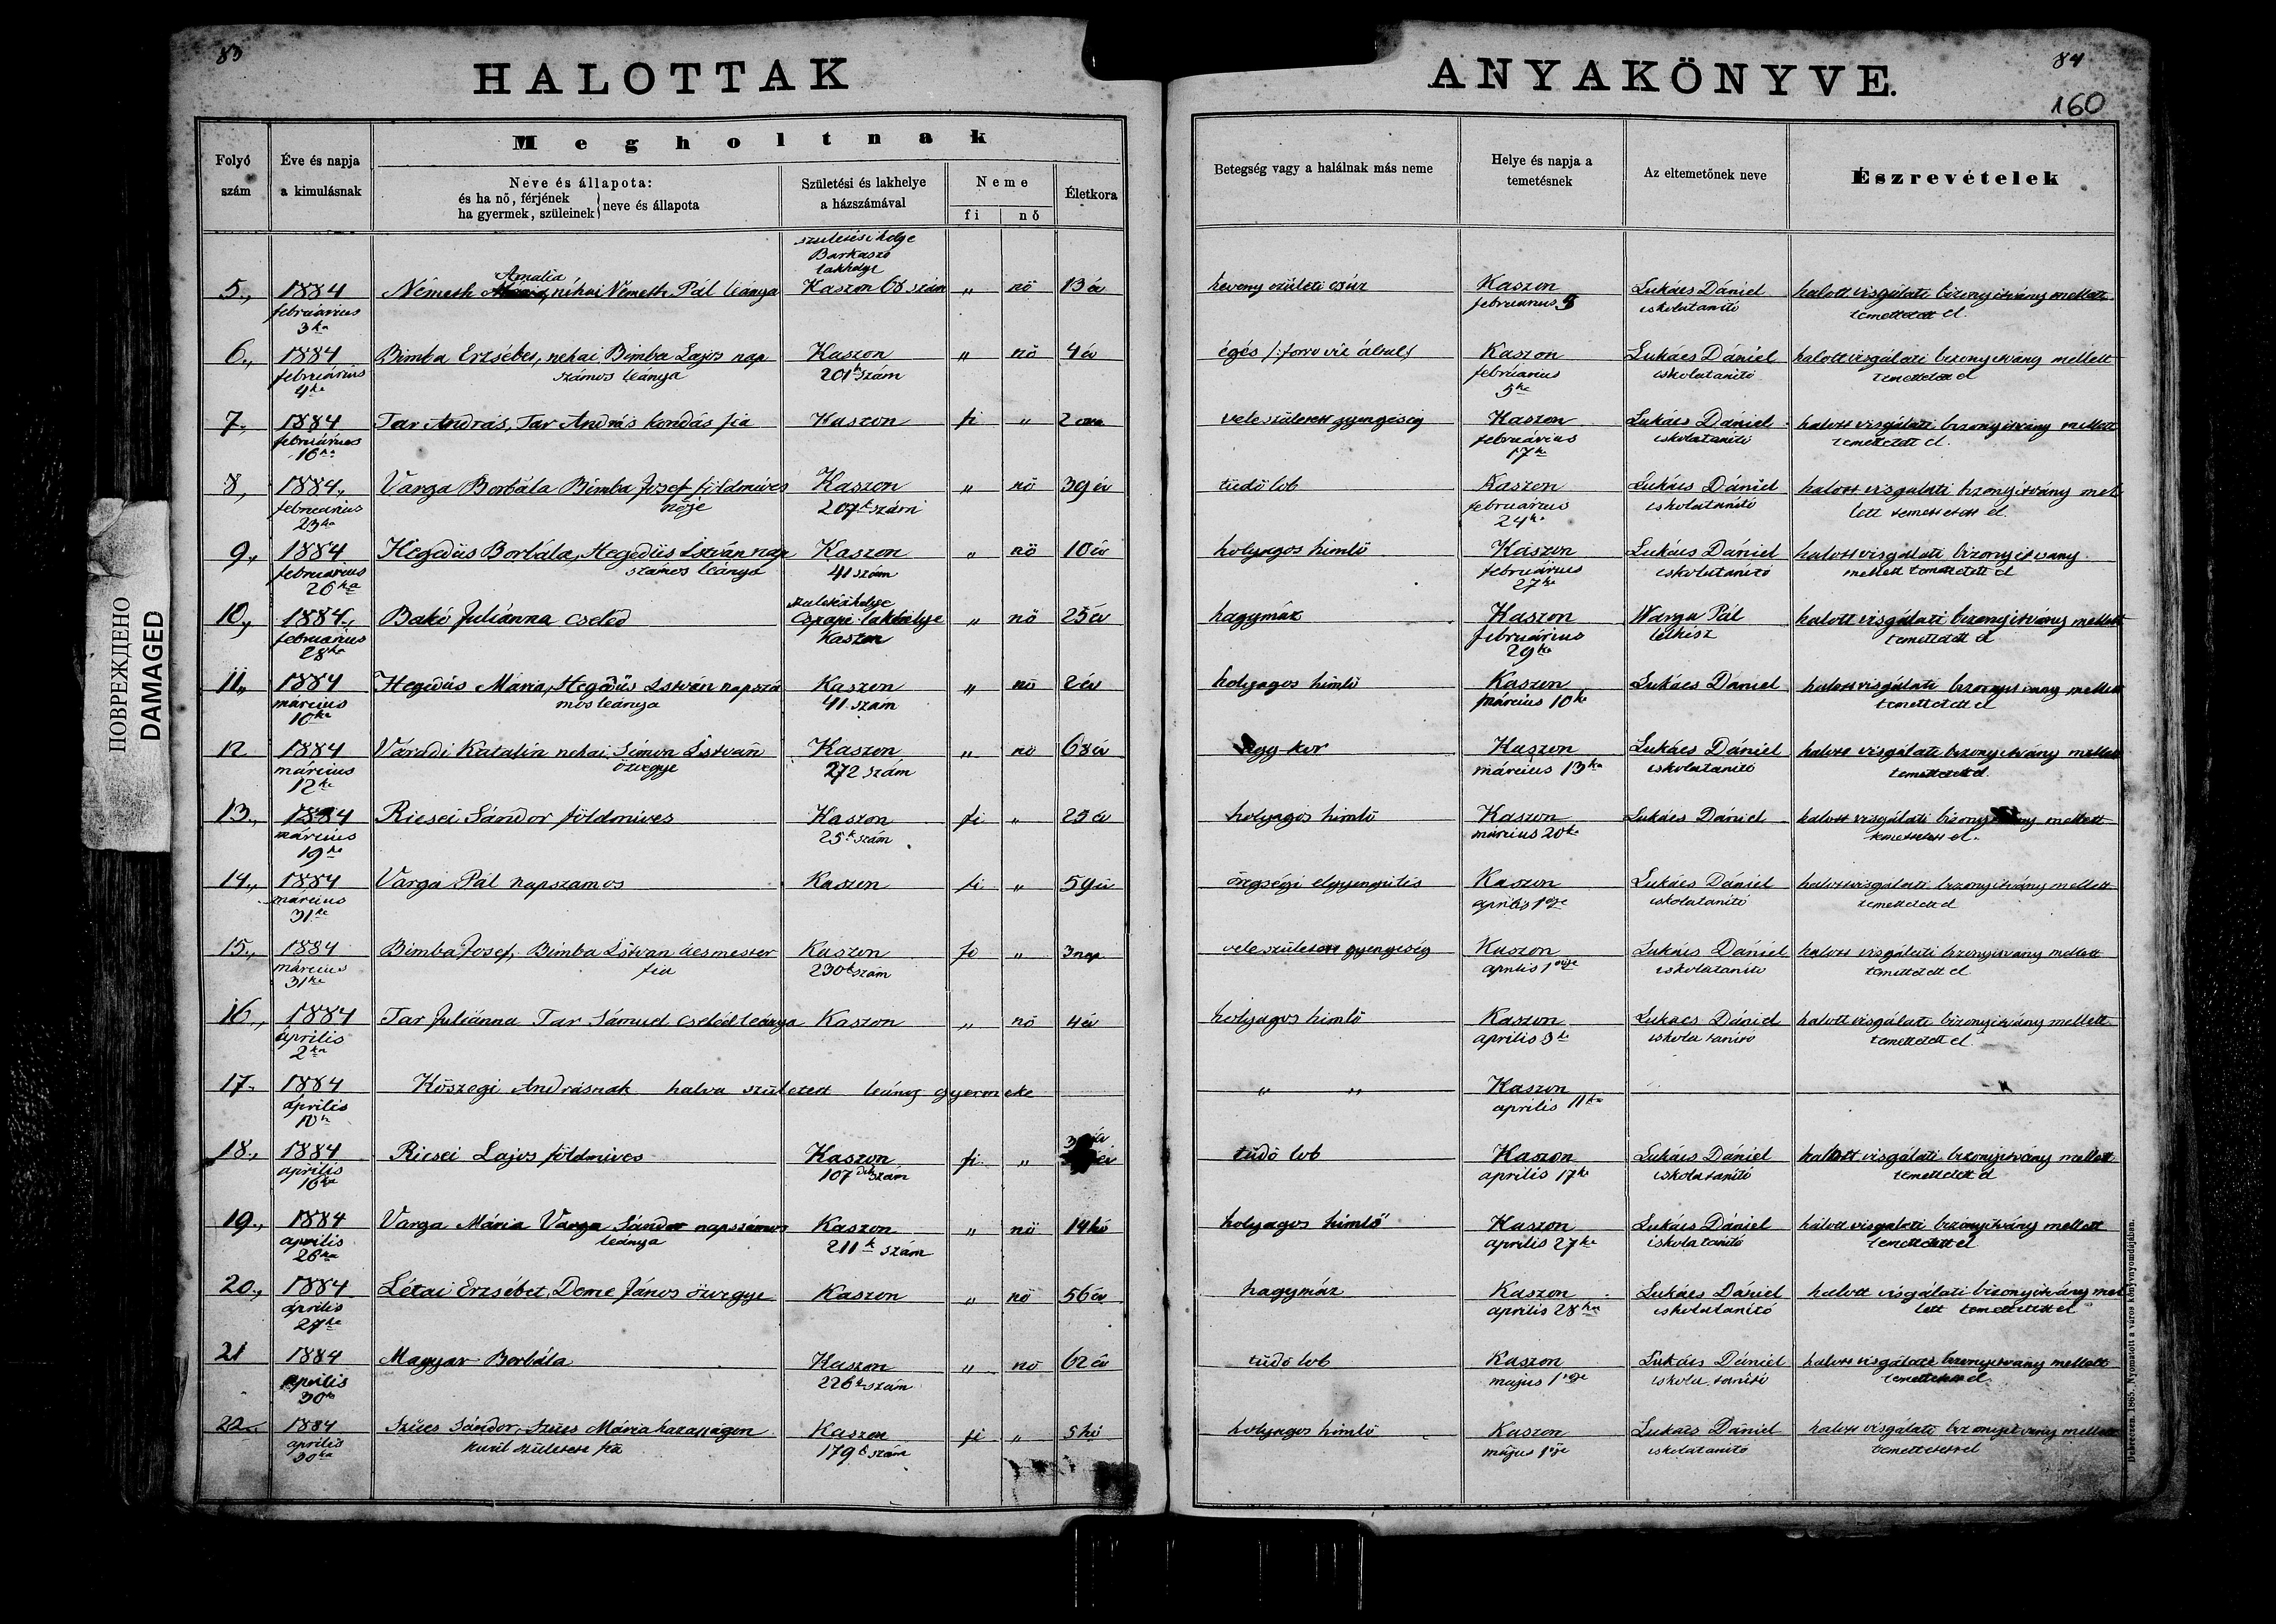 83
HALOTTAK
Folyó szám
Éve és napja a kimulásnak
Megholtnak
Neve és állapota:
és ha nő, férjének
ha gyermek, szüleinek
neve és állapota
Születési és lakhelye a házszámával
Neme
fi
nő
Életkora
5., 1884 februárius 3ka Németh Amalia néhai Németh Pál leánya születési helye Barkaszó lakhelye Kaszon 68 szám „ nő 13 év
6., 1884 februárius 4ke Bimba Erzsébet, néhai Bimba Lajos nap számos leánya Kaszon 201k szám „ nő 4 év
7., 1884 februárius 16ka Tar András, Tar András kondás fia Kaszon fi „ 2
8, 1884., februárius 23ka Varga Borbála Bimba Josef földmives nője Kaszon 207k szám „ nő 39 év
9., 1884 februárius 26ka Hegedüs Borbála, Hegedüs István nap számos leánya Kaszon 41 szám „ nő 10 év
10., 1884., februárius 28ka Bakó Juliánna cseléd születési helye lakhelye Kaszon „ nő 25 év
11., 1884 március 10ka Hegedüs Mária, Hegedüs István napszá mos leánya Kaszon 41 szám „ nő 2 év
12 1884 március 12ke Váradi Katalin néhai Simon István özvegye Kaszon 272 szám „ nő 68 év
13., 1884 március 19ke Ricsei Sándor földmives Kaszon 25k szám fi „ 25 év
14., 1884 március 31ke Varga Pál napszamos Kaszon fi „ 59 év
15., 1884 március 31ke Bimba Josef, Bimba István ácsmester fia Kaszon 230k szám fi „ 3 nap
16., 1884 április 2ka Tar Juliánna Tar Sámuel cseléd leánya Kaszon „ nő 4 év
17. 1884 április 10k Köszegi Andrásnak halva született leány gyermeke
18., 1884 április 16ka Ricsei Lajos földmives Kaszon 107dik szám fi „ év
19., 1884 április 26ka Varga Mária Varga Sándor napszámos leánya Kaszon 211k szám „ nő 14 hó
20., 1884 április 27ke Létai Erzsébet, Deme János özvegye Kaszon „ nő 56 év
21 1884 április 30k Magyar Borbála Kaszon 226k szám „ nő 62 év
22. 1884 április 30ka Szücs Sándor, Szücs Mária házasságon kivül született fia Kaszon 179k szám fi „ 5 hó
ПОВРЕЖДЕНО
DAMAGED
84
ANYAKÖNYVE.
160
Betegség vagy a halálnak más neme
Helye és napja a temetésnek
Az eltemetőnek neve
Észrevételek
heveny izületi csúz Kaszon februárius 5 Lukács Dániel iskolatanító halott visgálati bizonyitvány mellett temettetett el.
égés /: forró víz által/ Kaszon februárius 5ke Lukács Dániel iskolatanító halott visgálati bizonyitvány mellett temettetett el
vele született gyengeség Kaszon februárius 17ke Lukács Dániel iskolatanító halott visgálati bizonyitvány mellett temettetett el.
tüdő lob Kaszon februárius 24ke Lukács Dániel iskolatanító halott visgálati bizonyitvány mel lett temettetett el.
holyagos himlő Kaszon februárius 27ke Lukács Dániel iskolatanító halott visgálati bizonyitvany mellett temettetett el
hagymáz Kaszon februárius 29ke Warga Pál lelkész halott visgálati bizonyitvány mellett temettetett el
holyagos himlő Kaszon március 10ke Lukács Dániel halott visgálati bizonyitvany mellett temettetett el
agg kor Kaszon március 13ka Lukács Dániel iskolatanító halott visgálati bizonyitvány mellett temettetett el.
holyagos himlő Kaszon március 20ka Lukács Dániel halott visgálati bizonyitvány mellett temettetett el.
öregségi elgyengülés Kaszon április 1ője Lukács Dániel iskolatanító halott visgálati bizonyitvány mellett temettetett el
vele született gyengeség Kaszon április 1ője Lukács Dániel iskolatanító halott visgálati bizonyitvany mellett temettetett el
holyagos himlő Kaszon április 3ka Lukács Dániel iskola tanító halott visgálati bizonyitvány mellett temettetett el
„ „ Kaszon április 11ke
tüdő lob Kaszon április 17ke Lukács Dániel iskolatanító halott visgálati bizonyitvány mellett temettetett el
holyagos himlő Kaszon április 27ke Lukács Dániel iskolatanító halott visgalati bizonyitvány mellett temettetett el
hagymáz Kaszon április 28ka Lukács Dániel iskolatanító halott visgálati bizonyitvány mel lett temettetett el
tüdő lob Kaszon május 1ője Lukács Dániel iskola tanító halott visgálati bizonyitvány mellett temettetett el
holyagos himlő Kaszon május 1ője Lukács Dániel iskolatanító halott visgálati bizonyitvány mellett temettetett el
Debreczen. 1865. Nyomatott a város könyvnyomdájában.